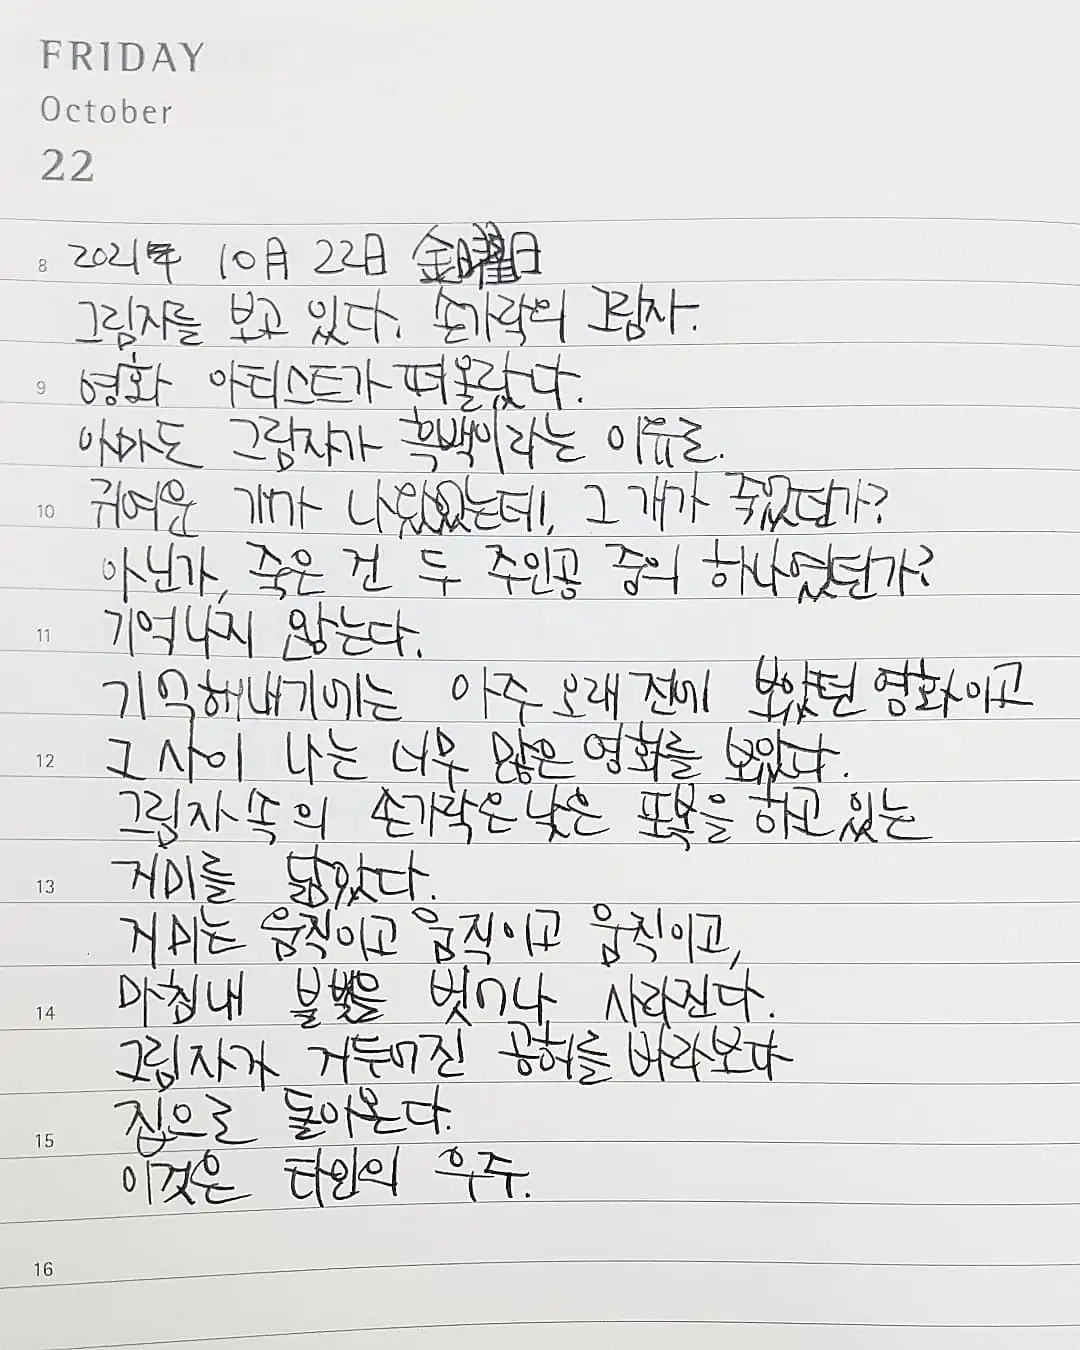 FRIDAY
October
22
8 2021年 10月 22日 金曜日
그림자를 보고 있다. 손가락의 그림자.
9 영화 아티스트가 떠올랐다.
아마도 그림자가 흑백이라는 이유로.
10 귀여운 개가 나왔었는데, 그 개가 죽었던가?
아닌가, 죽은 건 두 주인공 중의 하나였던가?
11 기억나지 않는다.
기억해내기에는 아주 오래 전에 보았던 영화이고
12 그 사이 나는 너무 많은 영화를 보았다.
그림자 속의 손가락은 낮은 포복을 하고 있는
13 거미를 닮았다.
거미는 움직이고 움직이고 움직이고,
14 마침내 불빛을 벗어나 사라진다.
그림자가 거두어진 공허를 바라보다
15 집으로 돌아온다.
이것은 타인의 우주.
16